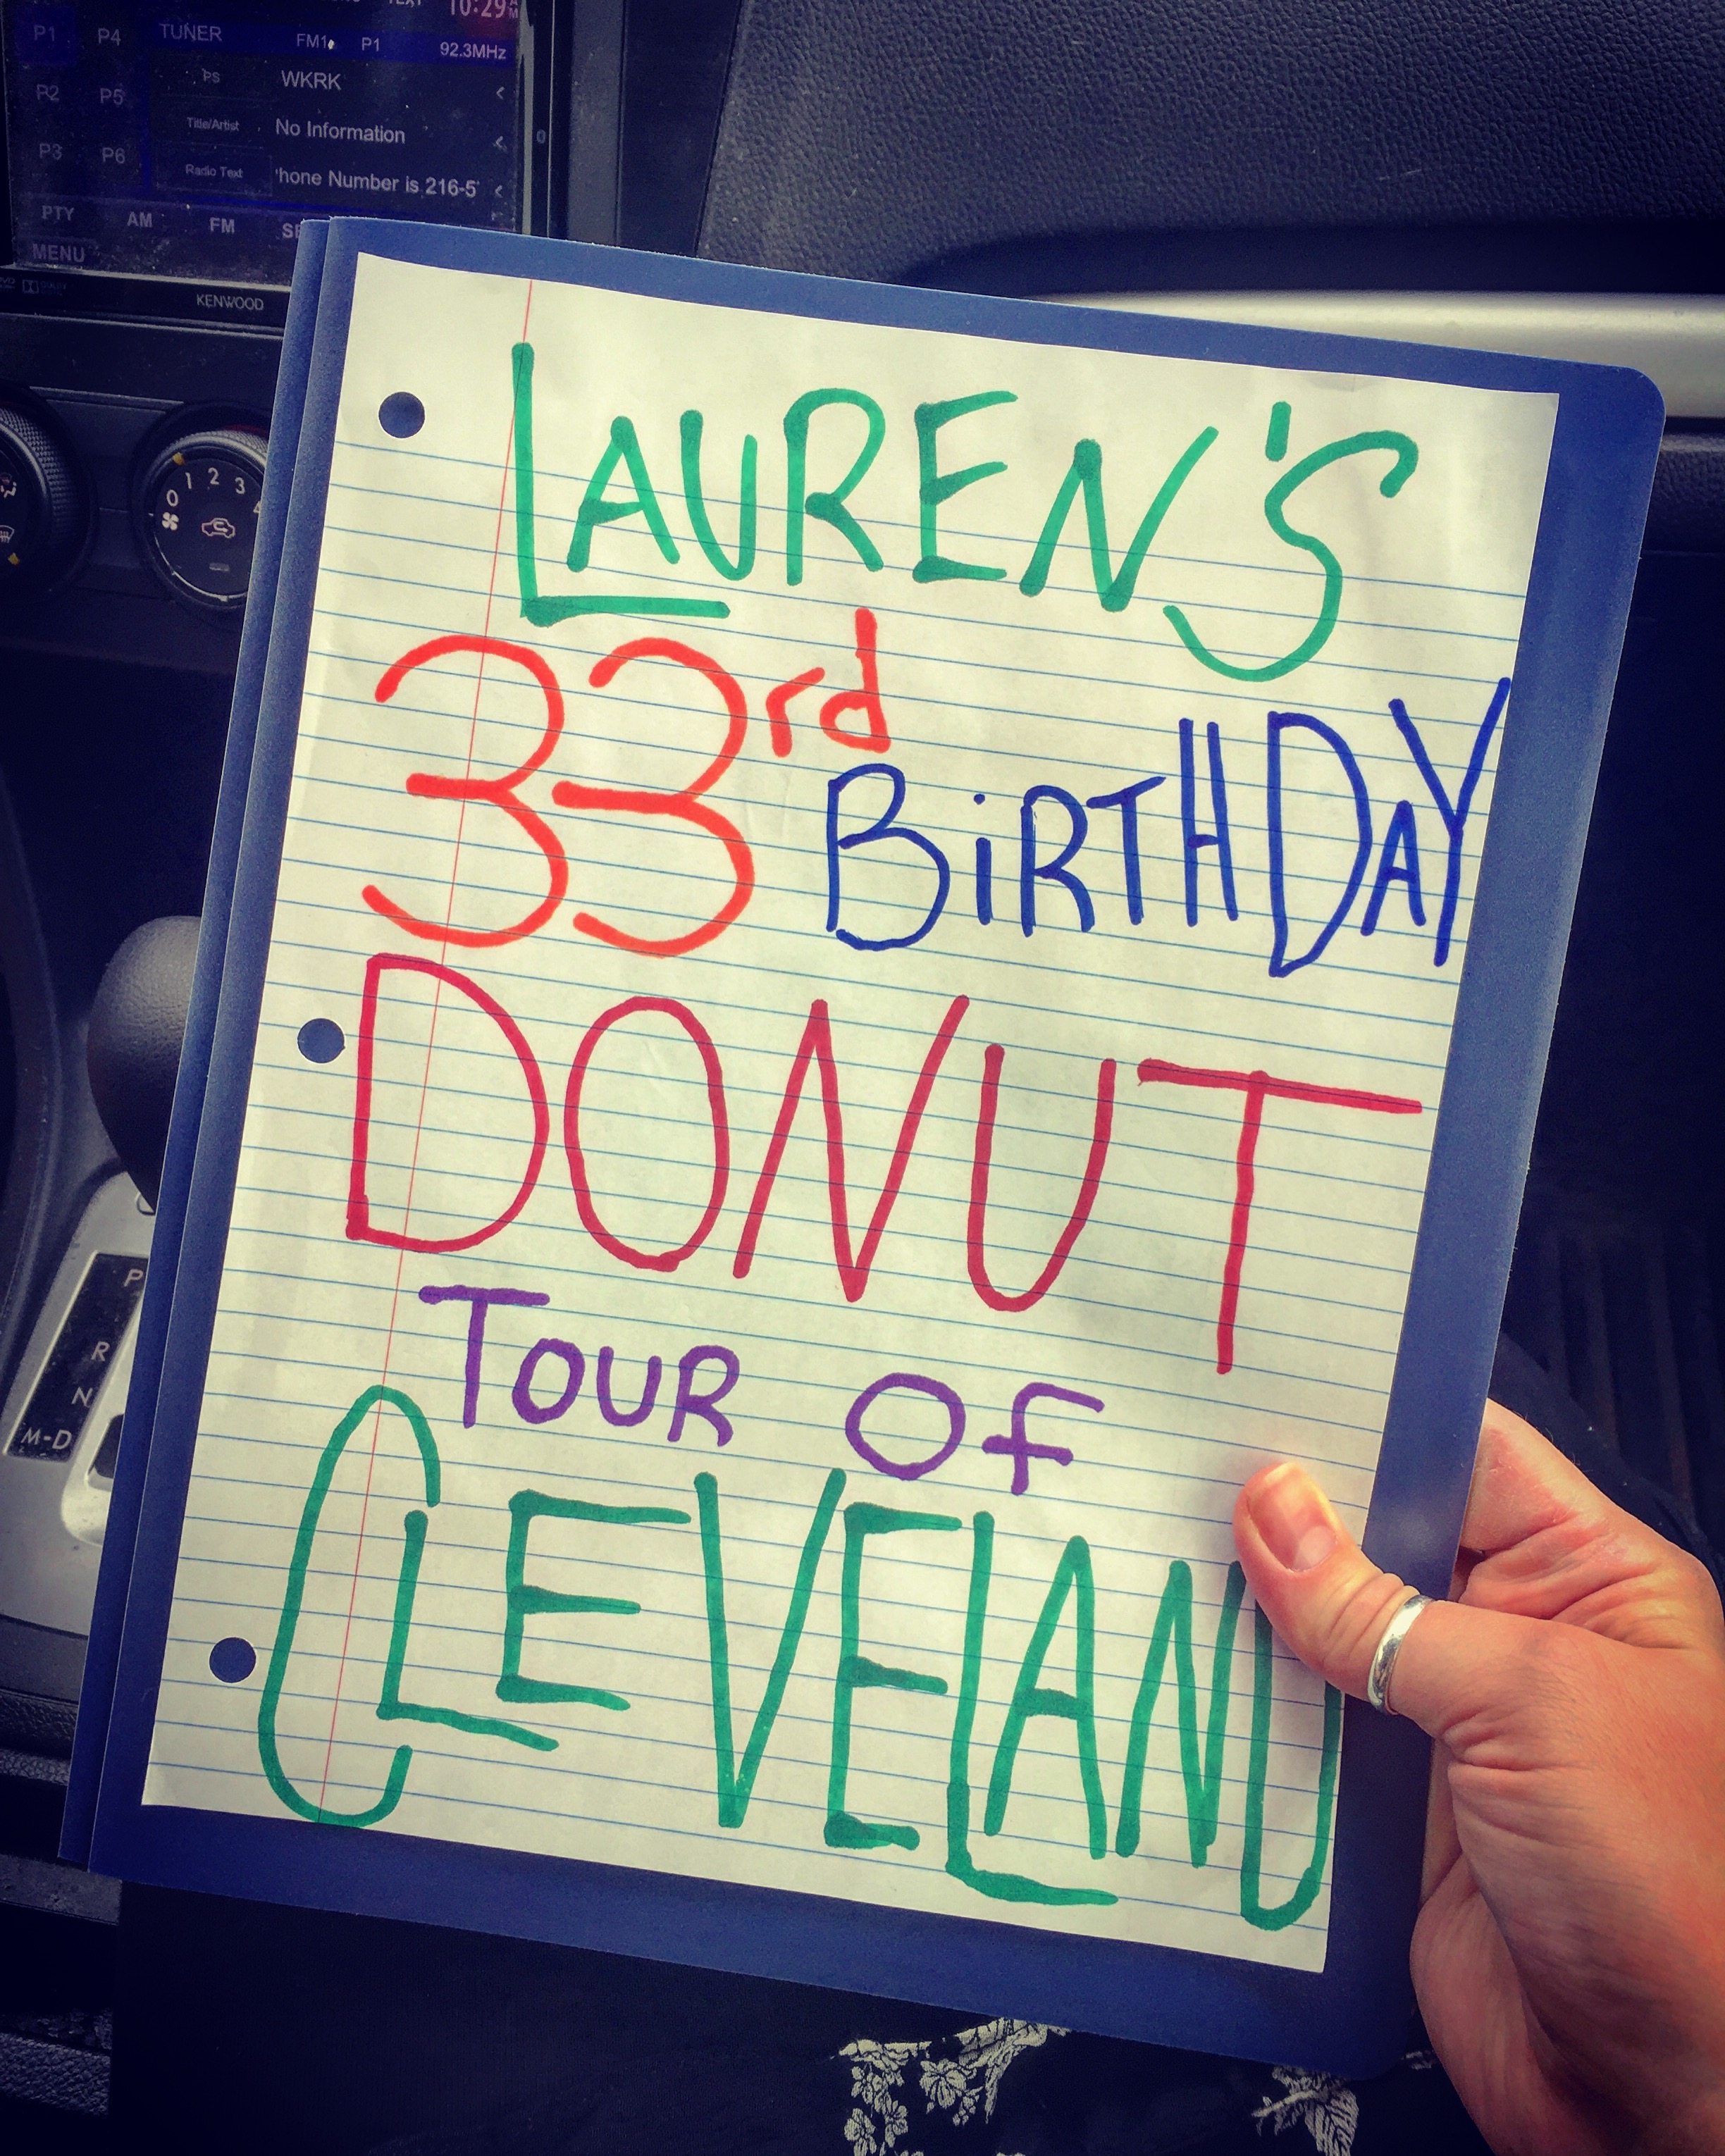 10:29 AM
P1 P4 TUNER FM1 P1 92.3MHz
P2 P5 PS WKRK
P3 P6 Title/Artist No Information
Radio Text 'hone Number is 216-5'
PTY AM FM
MENU
KENWOOD
0 1 2 3 4
LAUREN'S
33rd BiRTHDAY
DONUT
TOUR OF
CLEVELAND
P
R
N
M-D